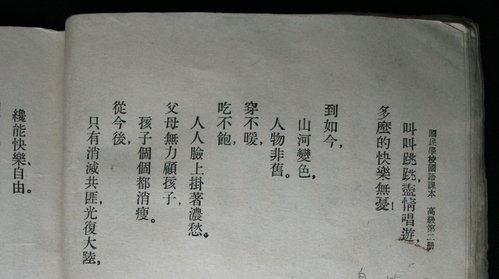 國民學校國語課本　高級第二册
叫叫跳跳盡情唱遊，
多麽的快樂無憂！
到如今，
山河變色，
人物非舊。
穿不暖，
吃不飽，
人人臉上掛著濃愁。
父母無力顧孩子，
孩子個個都消瘦。
從今後，
只有消滅共匪光復大陸，
纔能快樂、自由。